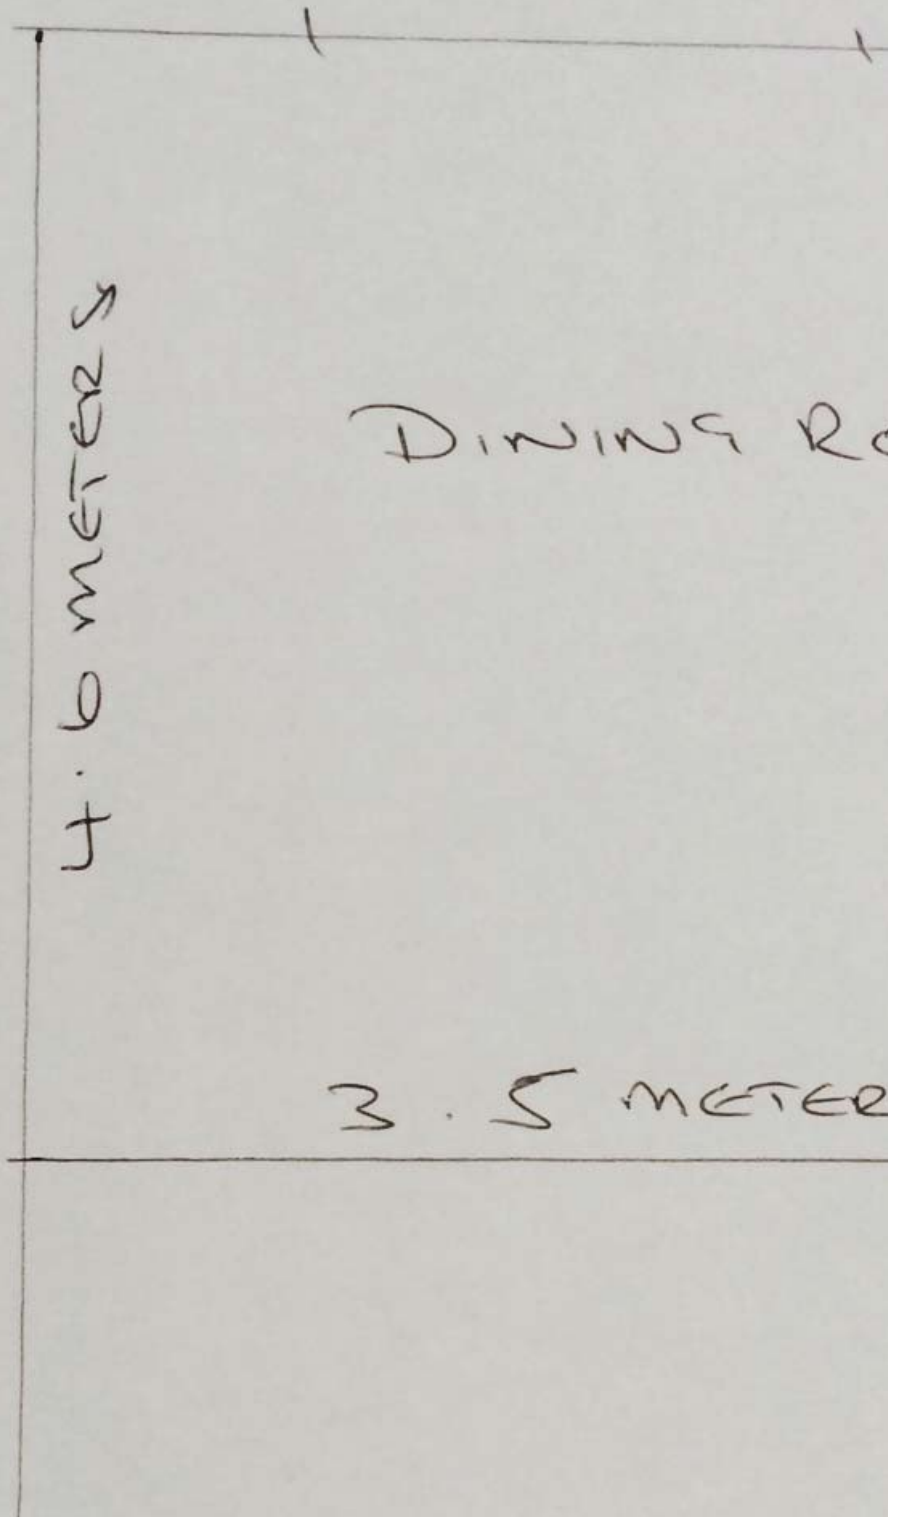 4.6 METERS
DINING RO
3.5 METER